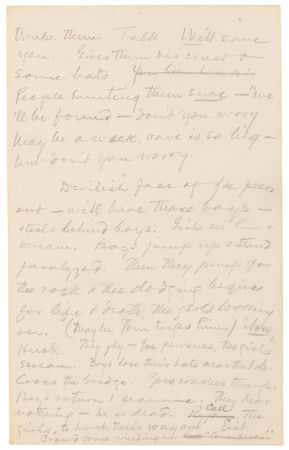 Wake them. Talk. We'll save
you. Gives them his crust &
some bats. You been here so!
People hunting them sure — "we
'll be found — don't you worry.
May be a week, cave is so big —
but don't you worry.
Devilish face of Joe peers
out — will have those boys —
steals behind boys. Girls see him &
scream. Boys jump up & stand
paralyzed. Then they jump for
the rock & the dodging begins
for life & death, the girls looking
on. (Maybe Tom trips him) "Now,
Huck. They fly — Joe pursues, the girls
scream. Boys lose their hats near the hole.
Cross the bridge. Joe crashes through.
Boys return & examine. They hear
nothing — he is dead. Call the
girls, to hunt their way out. Exit.
Crowd come winding in. "Come